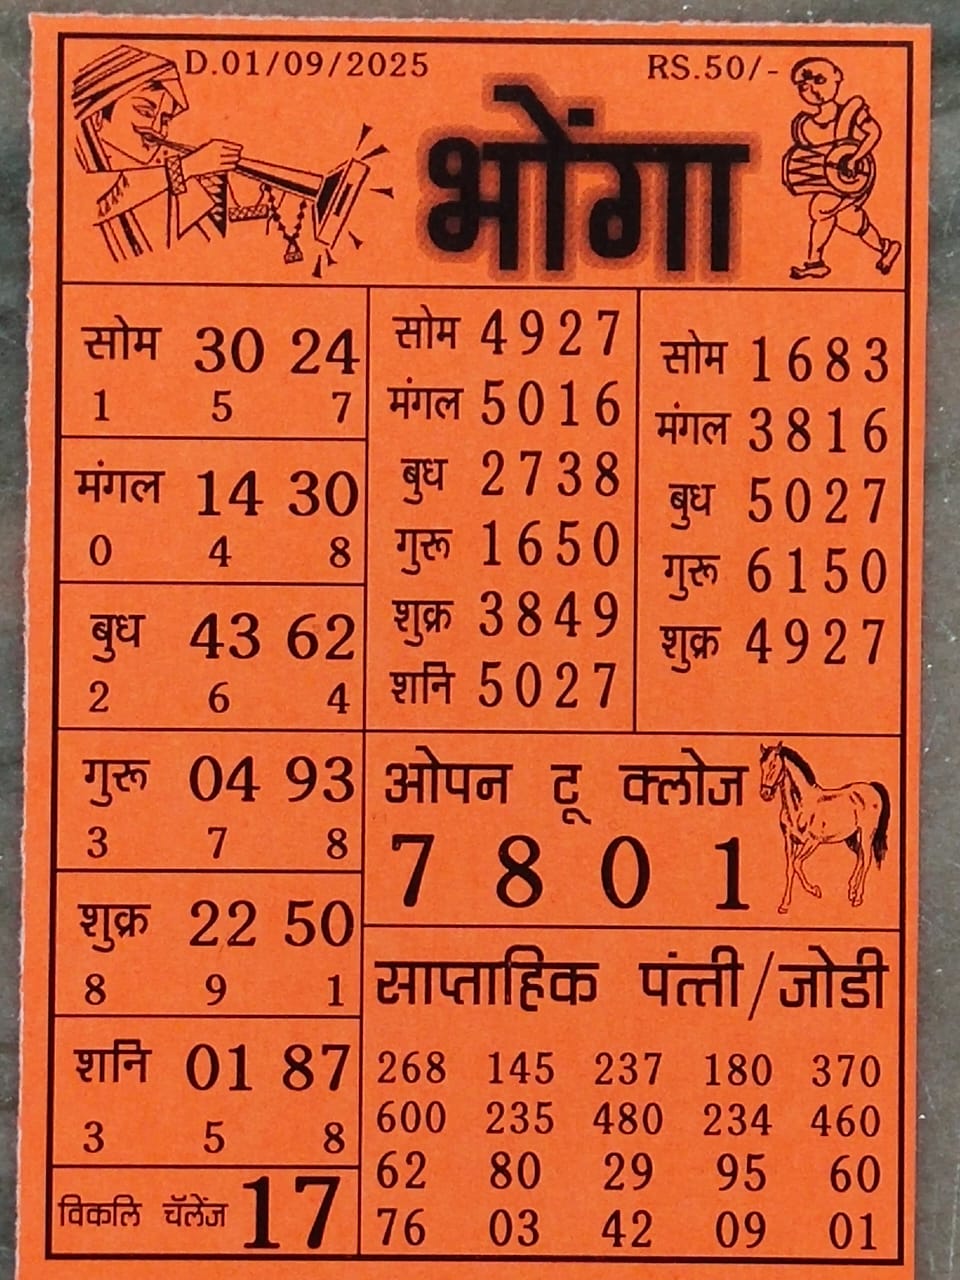 D.01/09/2025 RS.50/-
भोंगा
सोम 30 24
1 5 7
मंगल 14 30
0 4 8
बुध 43 62
2 6 4
गुरू 04 93
3 7 8
शुक्र 22 50
8 9 1
शनि 01 87
3 5 8
विकलि चॅलेंज 17
सोम 4927
मंगल 5016
बुध 2738
गुरू 1650
शुक्र 3849
शनि 5027
सोम 1683
मंगल 3816
बुध 5027
गुरू 6150
शुक्र 4927
ओपन टू क्लोज
7 8 0 1
साप्ताहिक पंत्ती/जोडी
268 145 237 180 370
600 235 480 234 460
62 80 29 95 60
76 03 42 09 01